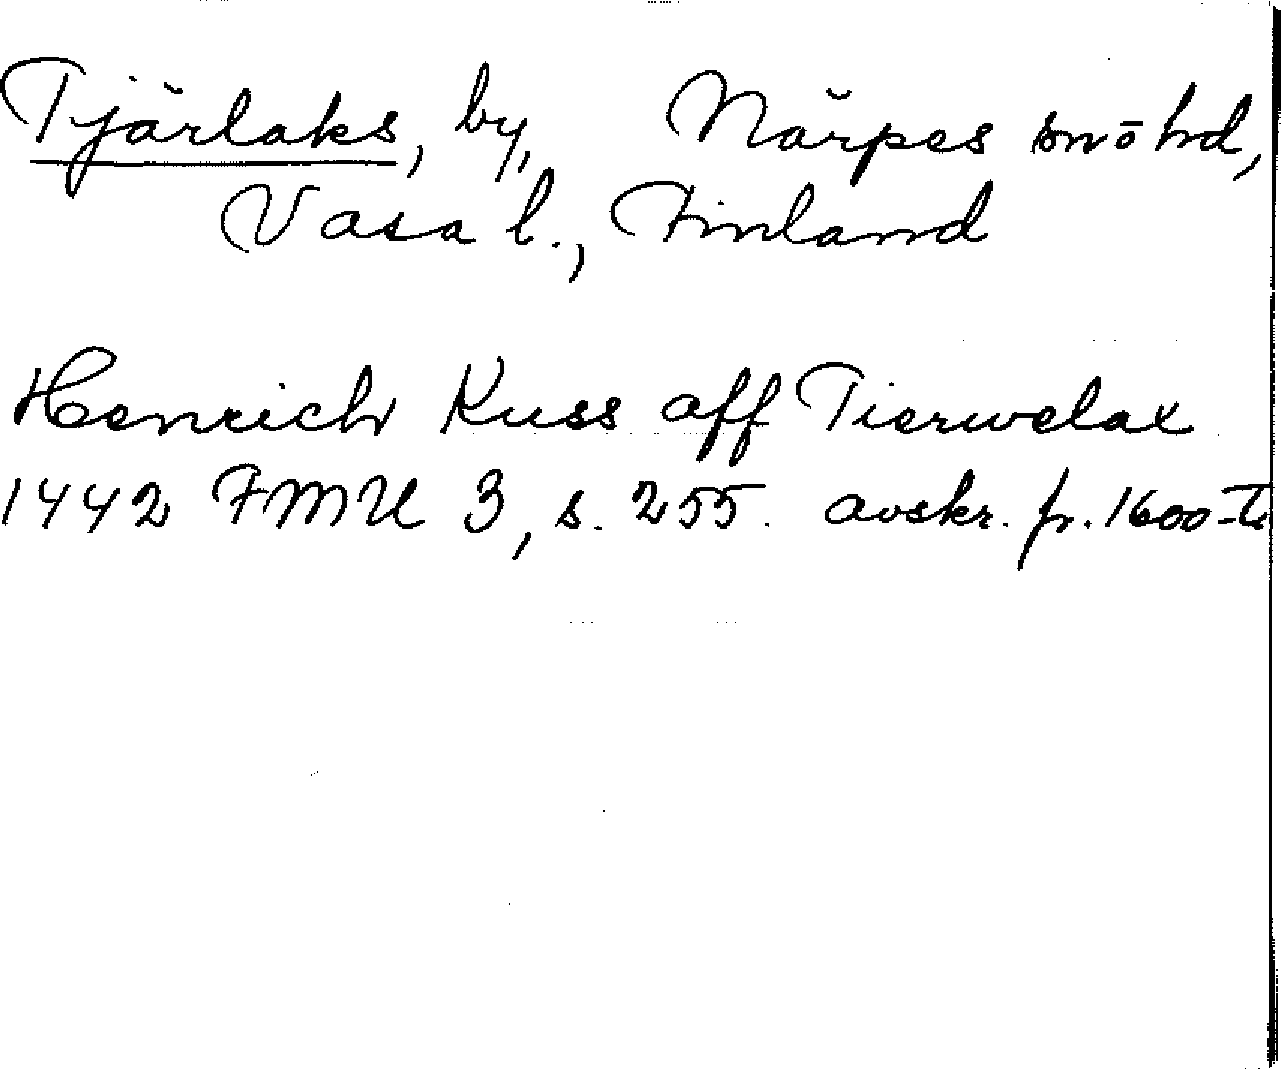 Tjärlaks, by, Närpes sn o hd,
Vasa l., Finland
Henrich Kuss aff Tierwelax
1442 FMU 3, s. 255. avskr. fr. 1600-t